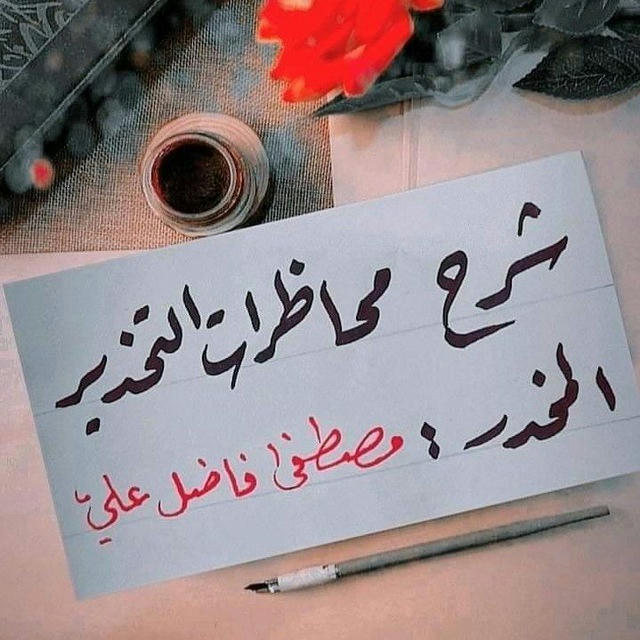 شرح محاظرات التخذير
المخدر : مصطفى فاضل علي